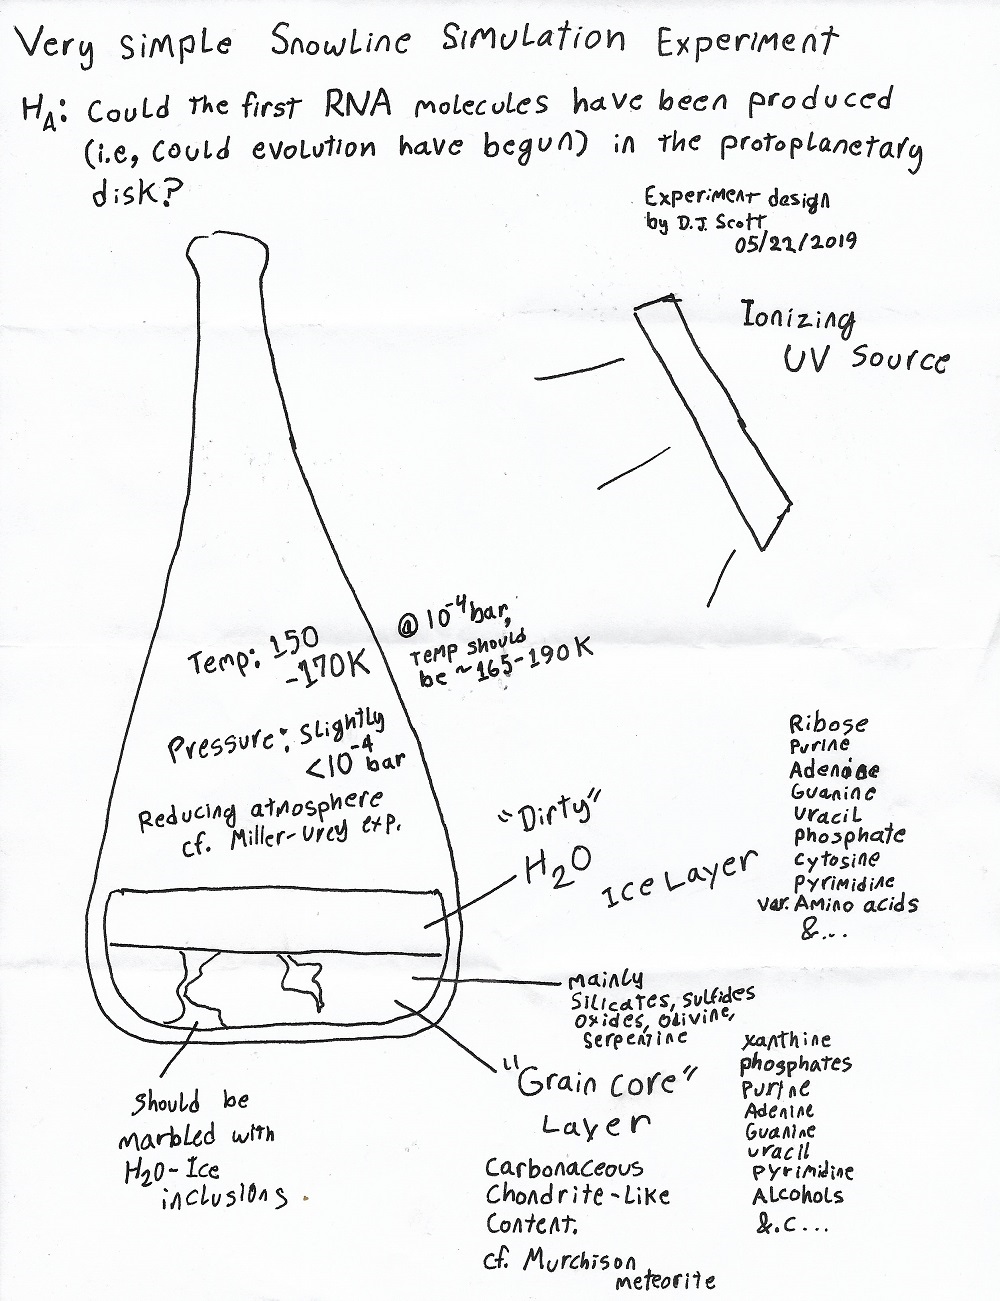 Very simple Snowline Simulation Experiment
HA: Could the first RNA molecules have been produced
(i.e, could evolution have begun) in the protoplanetary
disk?
Experiment design
by D.J. Scott
05/22/2019
Ionizing
UV Source
Temp: 150
-170K
@ 10^-4 bar,
Temp should
be ~165-190K
Pressure: slightly
<10^-4 bar
Reducing atmosphere
cf. Miller-Urey exp.
"Dirty"
H2O
Ice Layer
Ribose
Purine
Adenine
Guanine
Uracil
phosphate
Cytosine
Pyrimidine
var. Amino acids
&...
mainly
Silicates, sulfides
oxides, olivine,
serpentine
"Grain core"
Layer
Carbonaceous
Chondrite-Like
Content.
cf. Murchison
meteorite
xanthine
phosphates
Purine
Adenine
Guanine
uracil
Pyrimidine
Alcohols
&.c...
Should be
marbled with
H2O-Ice
inclusions.